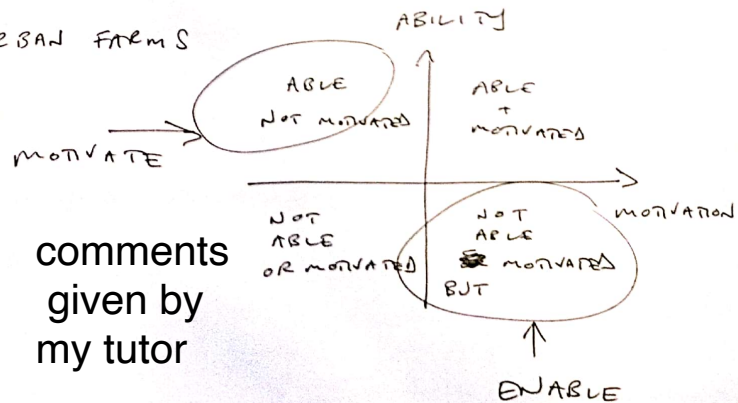 FARMS
ABILITY
ABLE
NOT MOTIVATED
ABLE
+
MOTIVATED
MOTIVATE
MOTIVATION
NOT
ABLE
OR MOTIVATED
NOT
ABLE
MOTIVATED
BUT
comments
given by
my tutor
ENABLE